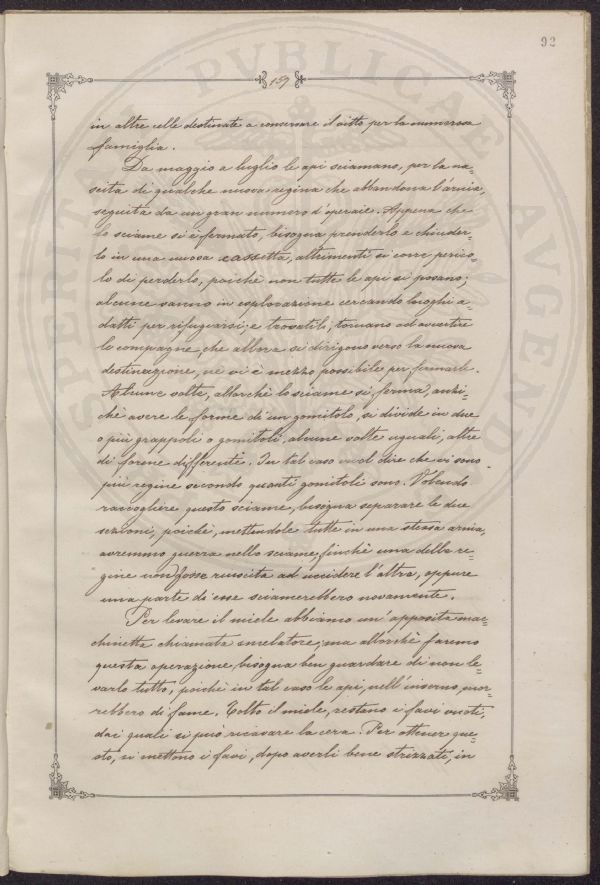 92
159
in altre celle destinate a conservare il vitto per la numerosa
famiglia.
Da maggio a luglio le api sciamano, per la na=
scita di qualche nuova regina che abbandona l'arnia,
seguita da un gran numero d'operaie. Appena che
lo sciame si è fermato, bisogna prenderlo e chiuder-
lo in una nuova cassetta, altrimenti si corre perico-
lo di perderlo, poichè non tutte le api si posano;
alcune vanno in esplorazione cercando luoghi a-
datti per rifugiarsi; e trovatili, tornano ad avvertire
le compagne, che allora si dirigono verso la nuova
destinazione, nè vi è mezzo possibile per fermarle.
Alcune volte, allorchè lo sciame si ferma, anzi-
chè avere le forme di un gomitolo, si divide in due
o più grappoli o gomitoli, alcune volte uguali, altre
di forme differenti. In tal caso vuol dire che vi sono
più regine secondo quanti gomitoli sono. Volendo
raccogliere questo sciame, bisogna separare le due
sezioni, poichè, mettendole tutte in una stessa arnia,
avremmo guerra nello sciame, finchè una delle re=
gine non fosse riuscita ad uccidere l'altra, oppure
una parte di esse sciamerebbero novamente.
Per levare il miele abbiamo un'apposita mac=
chinetta chiamata smelatore; ma allorchè faremo
questa operazione, bisogna ben guardare di non le=
varlo tutto, poichè in tal caso le api, nell'inverno, mor=
rebbero di fame. Tolto il miele, restano i favi vuoti,
dai quali si può ricavare la cera. Per ottener que=
sto, si mettono i favi, dopo averli bene strizzati, in
PERITAT PVBLICAE AVGENDAE